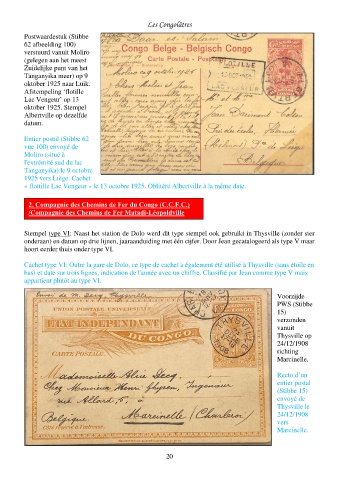 Les Congolâtres
Postwaardestuk (Stibbe
62 afbeelding 100)
verstuurd vanuit Moliro
(gelegen aan het meest
Zuidelijke punt van het
Tanganyika meer) op 9
oktober 1925 naar Luik.
Afstempeling ‘flotille
Lac Vengeur’ op 13
oktober 1925. Stempel
Albertville op dezelfde
datum.
Entier postal (Stibbe 62
vue 100) envoyé de
Moliro (situé à
l'extrémité sud du lac
Tanganyika) le 9 octobre
1925 vers Liège. Cachet
« flottille Lac Vengeur » le 13 octobre 1925. Oblitéré Albertville à la même date.
Congo Belge - Belgisch Congo
Carte Postale -
2. Compagnie des Chemins de Fer du Congo (C.C.F.C.)
/Compagnie des Chemins de Fer Matadi-Léopoldville
Stempel type VI: Naast het station de Dolo werd dit type stempel ook gebruikt in Thysville (zonder ster
onderaan) en datum op drie lijnen, jaaraanduiding met één cijfer. Door Jean gecatalogeerd als type V maar
hoort eerder thuis onder type VI.
Cachet type VI: Outre la gare de Dolo, ce type de cachet a également été utilisé à Thysville (sans étoile en
bas) et date sur trois lignes, indication de l'année avec un chiffre. Classifié par Jean comme type V mais
appartient plutôt au type VI.
UNION POSTALE UNIVERSELLE
ETAT INDEPENDANT
DU CONGO
CARTE POSTALE
Mademoiselle Alice Stecq
Chez Monsieur Henri Ghysen, Ingénieur
rue Allard, 5, à
Marcinelle (Charleroi)
Belgique
Voorzijde
PWS (Stibbe
15)
verzonden
vanuit
Thysville op
24/12/1908
richting
Marcinelle.
Recto d’un
entier postal
(Stibbe 15)
envoyé de
Thysville le
24/12/1908
vers
Marcinelle.
20